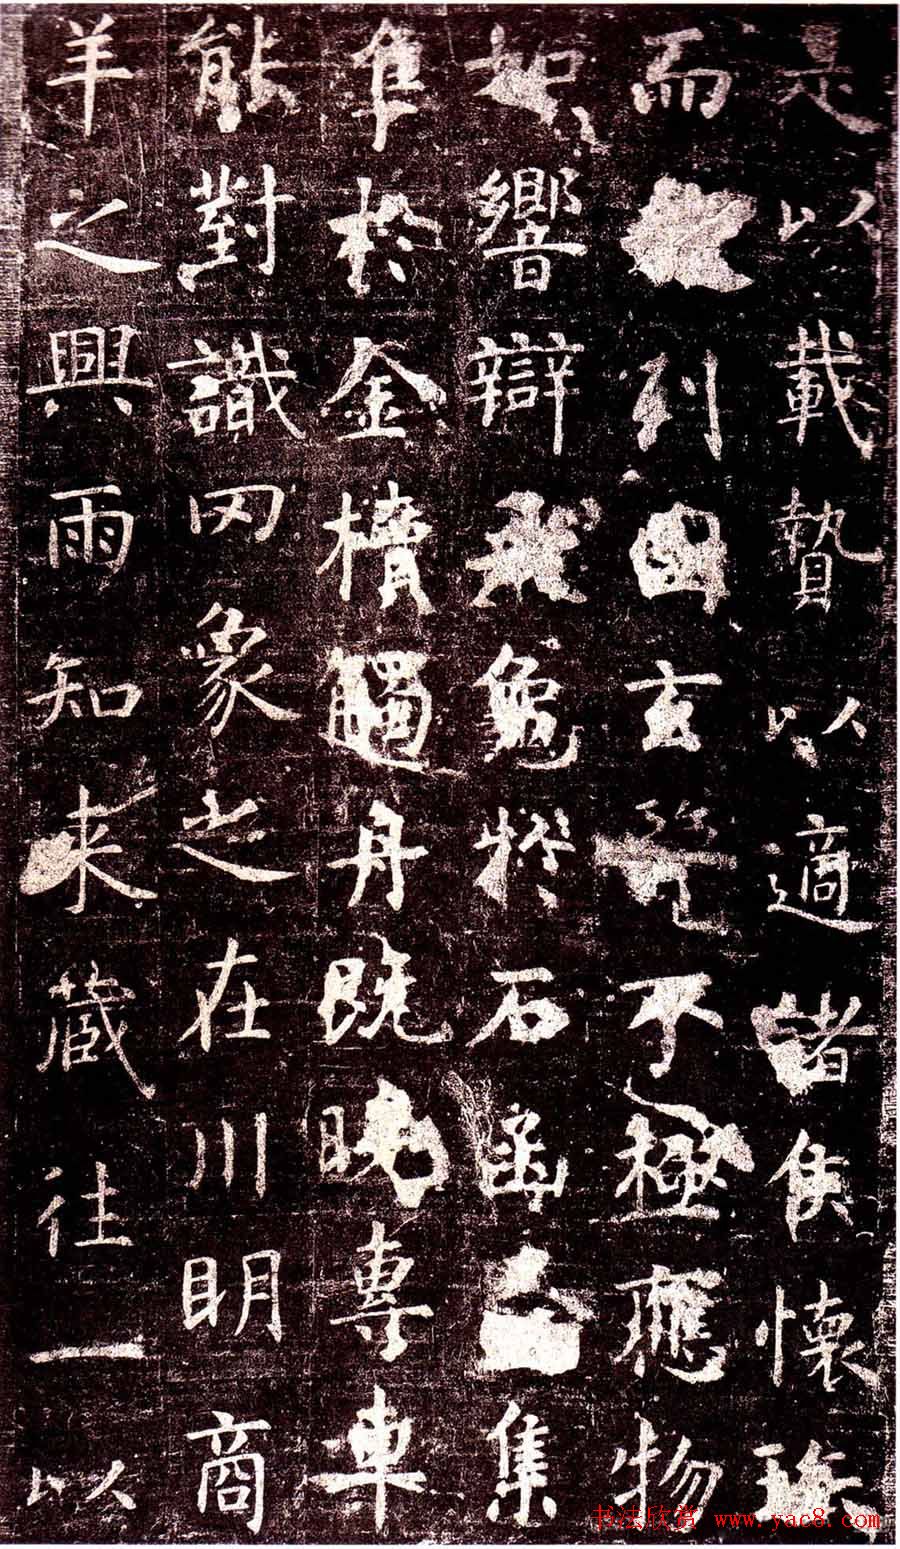 是以載贄以適諸侯懷珤
而列國玄覽不極應物
如響辯飛龜於石函集
隼於金櫝觸舟既曉專車
能對識罔象之在川明商
羊之興雨知來藏往一以
书法欣赏 www.yac8.com